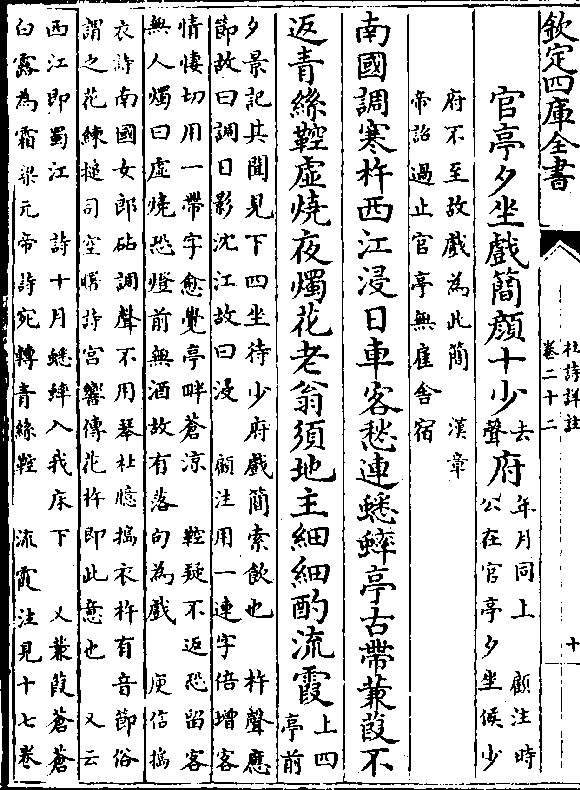 欽定四庫全書
杜詩詳註
卷二十二
十
官亭夕坐戲簡顏十少去聲府年月同上　顧注時公在官亭夕坐候少
府不至故戲為此簡　漢章
帝詔過止官亭無雇舍宿
南國調寒杵西江浸日車客愁連蟋蟀亭古帶蒹葭不
返青絲鞚虛燒夜燭花老翁須地主細細酌流霞上四亭前
夕景記其聞見下四坐待少府戲簡索飲也　杵聲應
節故曰調日影沈江故曰浸　顧注用一連字倍增客
情悽切用一帶字愈覺亭畔蒼涼　鞚疑不返恐留客
無人燭曰虛燒恐燈前無酒故有落句為戲　庾信搗
衣詩南國女郎砧調聲不用琴杜臆搗衣杵有音節俗
謂之花練搥司空曙詩宮響傳花杵即此意也　又云
西江即蜀江　詩十月蟋蟀入我床下　又蒹葭蒼蒼
白露為霜梁元帝詩宛轉青絲鞚　流霞注見十七卷